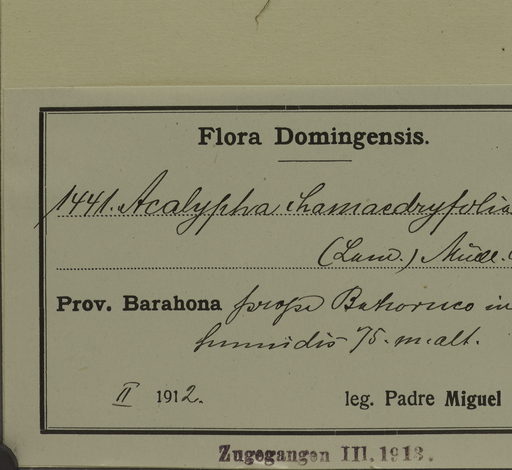 Flora Domingensis.
1441. Acalypha chamaedryfolia
(Lam.) Müll.
Prov. Barahona prope Bahoruco in
humidis 75. m. alt.
II 1912.
leg. Padre Miguel
Zugegangen III. 1913.